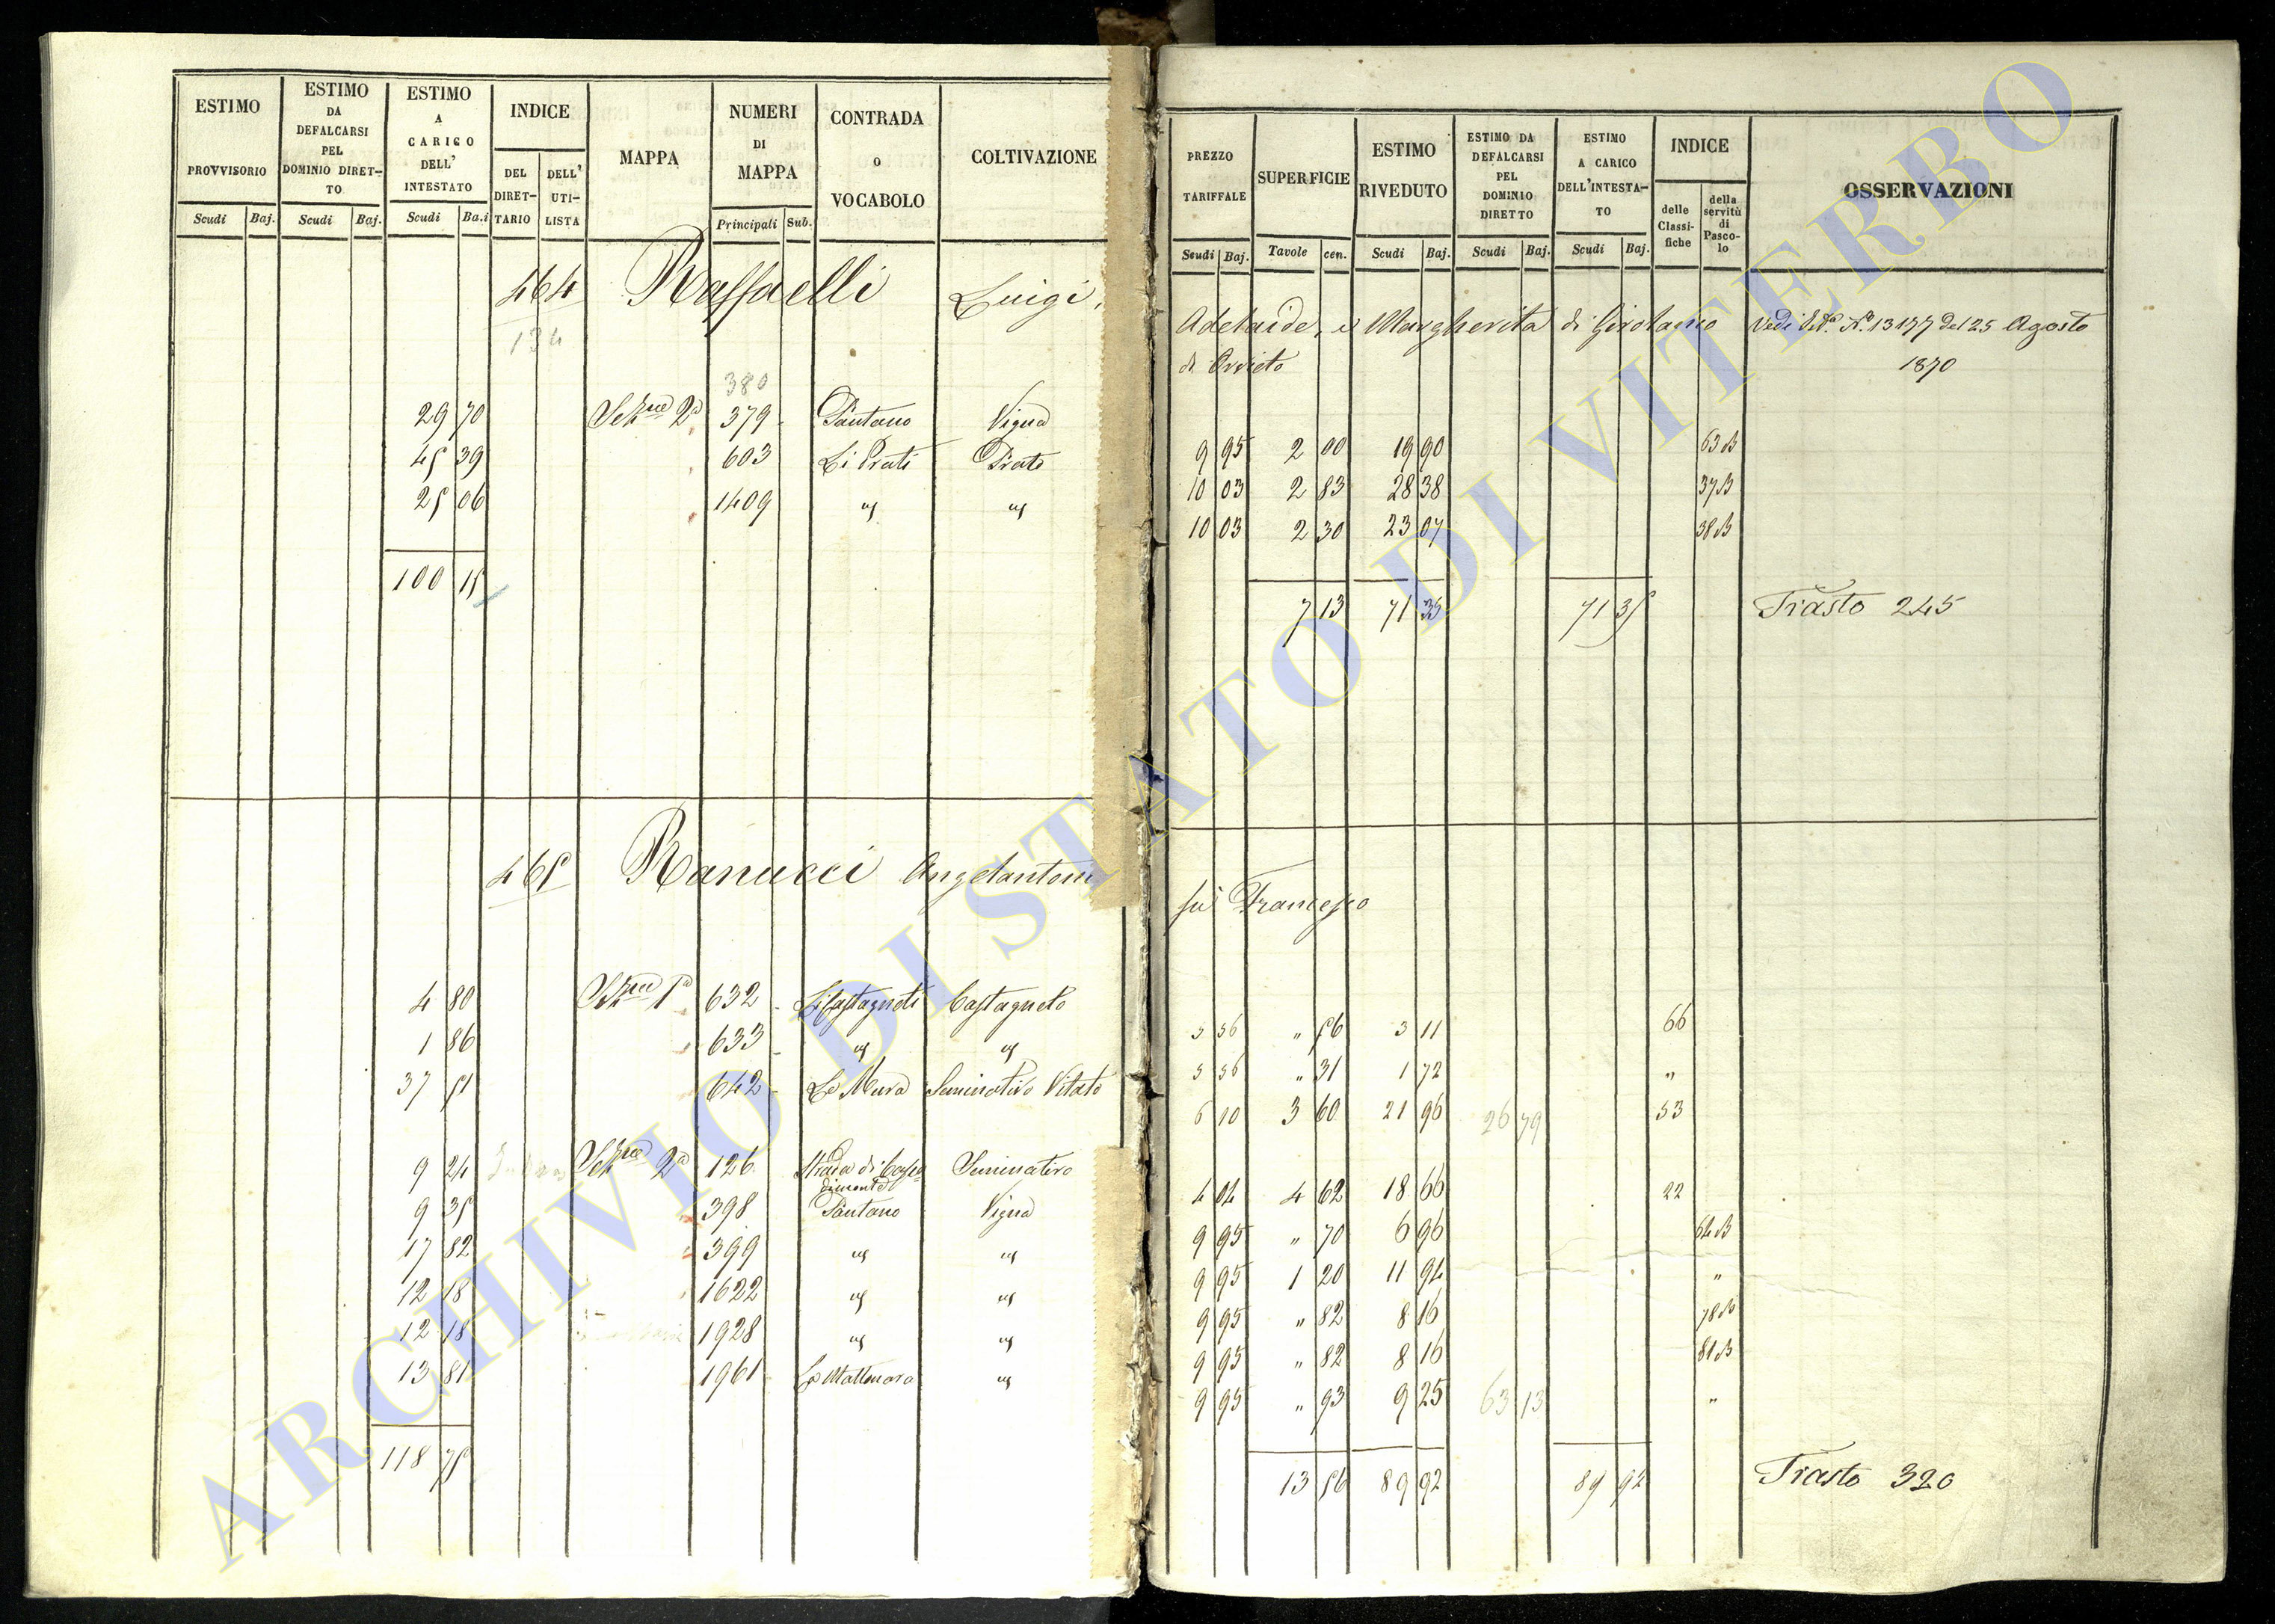 ESTIMO PROVVISORIO Scudi Baj.
ESTIMO DA DEFALCARSI PEL DOMINIO DIRET-TO Scudi Baj.
ESTIMO A CARICO DELL' INTESTATO Scudi Ba.i
INDICE DEL DIRET-TARIO DELL' UTI-LISTA
MAPPA
NUMERI DI MAPPA Principali Sub.
CONTRADA o VOCABOLO
COLTIVAZIONE
464 Raffaelli Luigi,
134
380
29 70 Sezne 2a 379 Pantano Vigna
45 39 603 Li Prati Prato
25 06 1409 " "
100 15
465 Ranucci Angelantonio
4 80 Sezne 1a 632 Li Castagneti Castagneto
1 86 633 " "
37 51 642 Le Mura Seminativo Vitato
9 24 Sezne 2a 126 Strada di Caspo- Seminativo
dimonte
9 35 398 Pantano Vigna
17 82 399 " "
12 18 1622 " "
12 18 1928 " "
13 81 1961 "
118 75
PREZZO TARIFFALE Scudi Baj.
SUPERFICIE Tavole cen.
ESTIMO RIVEDUTO Scudi Baj.
ESTIMO DA DEFALCARSI PEL DOMINIO DIRETTO Scudi Baj.
ESTIMO A CARICO DELL'INTESTA-TO Scudi Baj.
INDICE delle Classi-fiche della servitù di Pasco-lo
OSSERVAZIONI
Adelaide, e Margherita di Girolamo Vedi No. 13177 del 25 Agosto
di Orvieto 1870
9 95 2 00 19 90 63 B
10 03 2 83 28 38 37 B
10 03 2 30 23 07 38 B
7 13 71 35 71 35 Trasto 245
fu Francesco
5 56 " 56 3 11 66
5 56 " 31 1 72 "
6 10 3 60 21 96 26 79 53
4 04 4 62 18 66 22
9 95 " 70 6 96 64 B
9 95 1 20 11 94 "
9 95 " 82 8 16 78 B
9 95 " 82 8 16 81 B
9 95 " 93 9 25 63 13 "
13 56 89 92 89 92 Trasto 320
ARCHIVIO DI STATO DI VITERBO